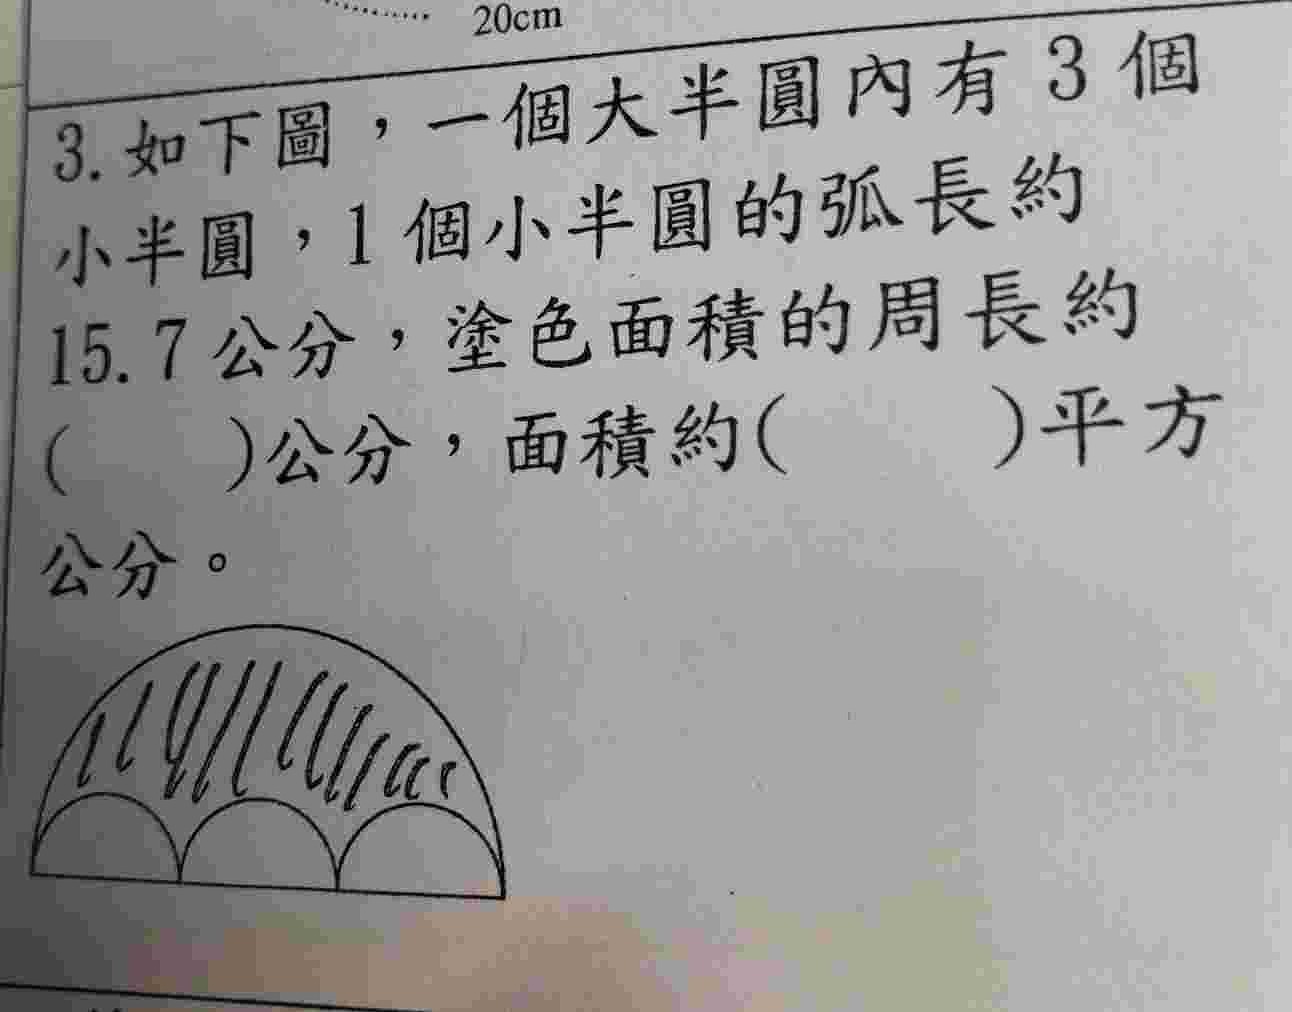 20cm
3. 如下圖，一個大半圓內有 3 個
小半圓，1 個小半圓的弧長約
15.7 公分，塗色面積的周長約
(　　)公分，面積約(　　)平方
公分。